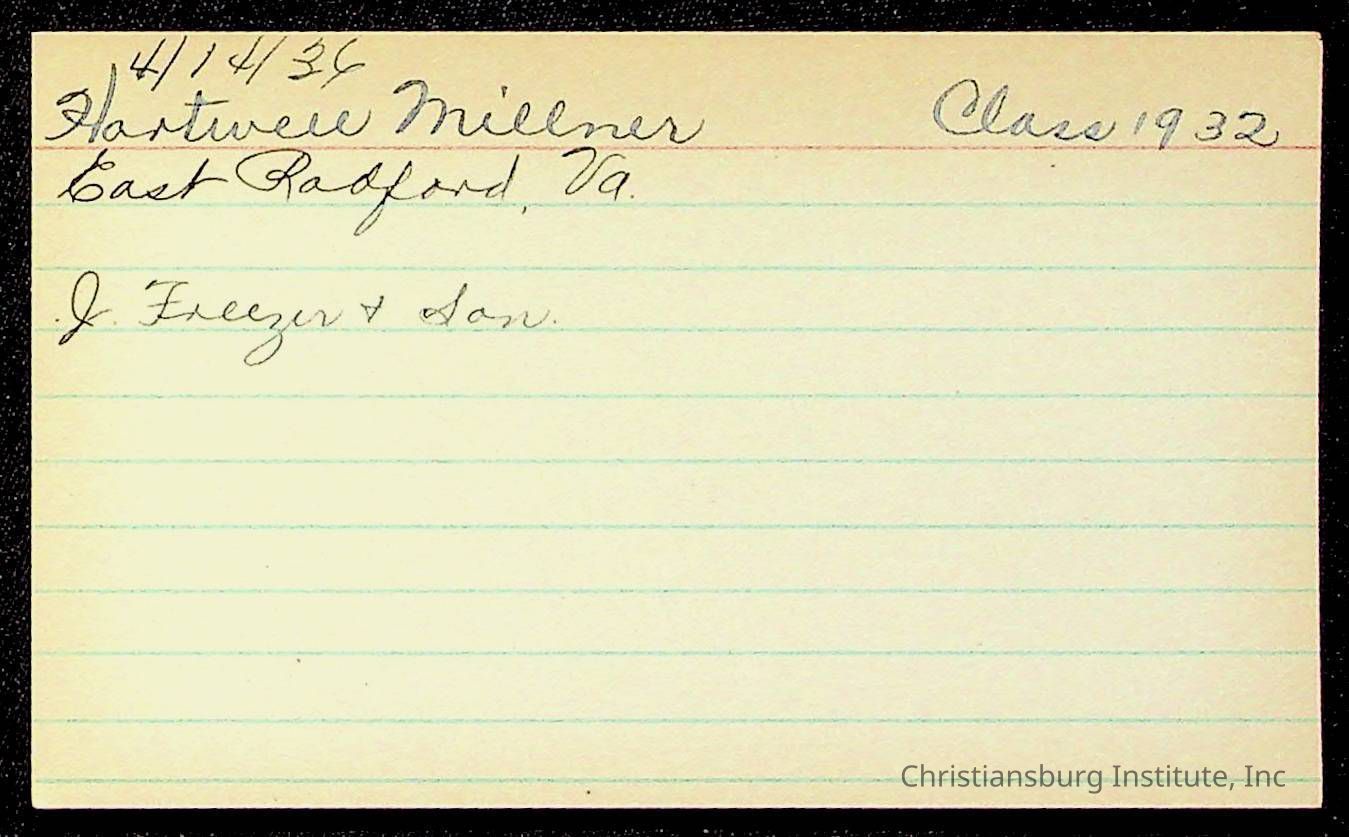 4/14/36
Hartwell Millner Class 1932
East Radford, Va.
J. Freezer & Son.
Christiansburg Institute, Inc